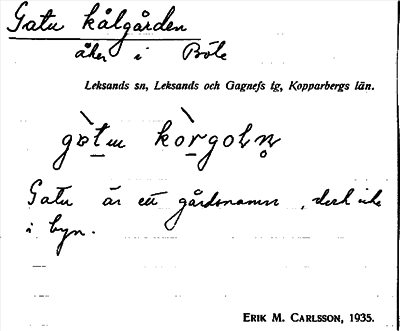 Gatu kålgården
åker i Böle
Leksands sn, Leksands och Gagnefs tg, Kopparbergs län.
Gatu är ett gårdsnamn, dock icke
i byn.
ERIK M. CARLSSON, 1935.